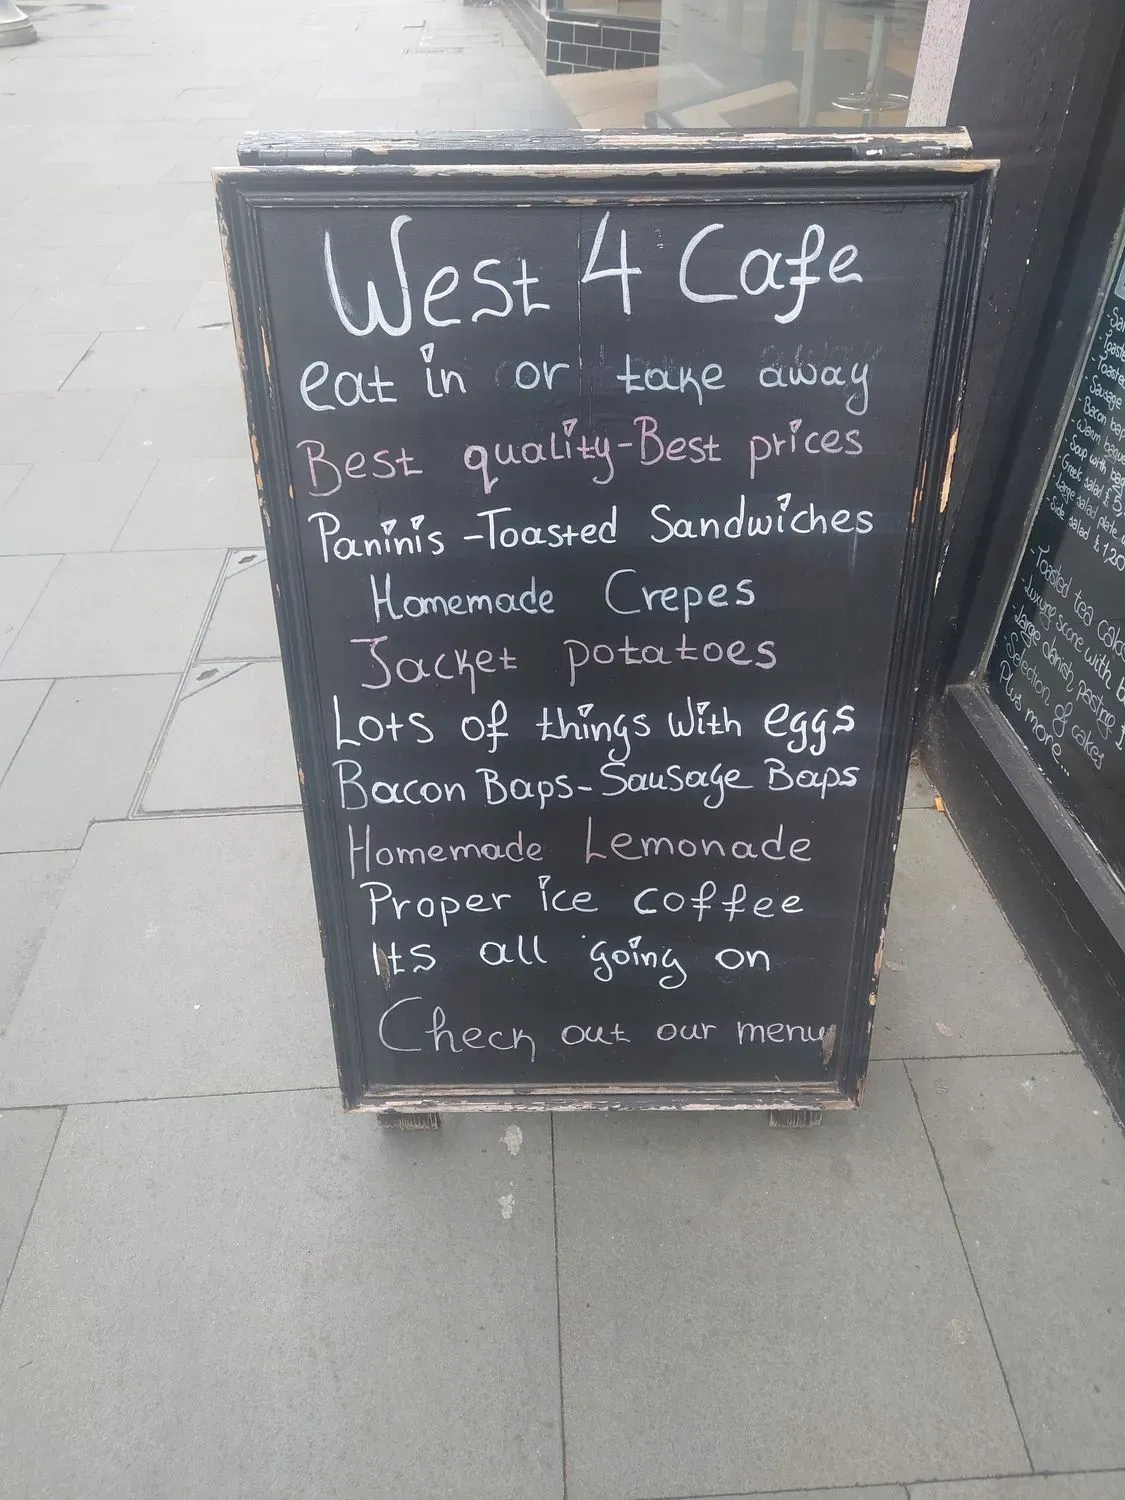 West 4 Cafe
eat in or take away
Best quality-Best prices
Paninis -Toasted Sandwiches
Homemade Crepes
Jacket potatoes
Lots of things with eggs
Bacon Baps-Sausage Baps
Homemade Lemonade
Proper ice coffee
Its all going on
Check out our menu
- Toasted
- Sausage
- Bacon
- Warm
- Soup with
- Greek salad £5,
- Large salad plate
- Side salad £1,20
- Toasted tea cake
- Luxury scone with
- Large danish pastry
Selection of cakes
Plus more...